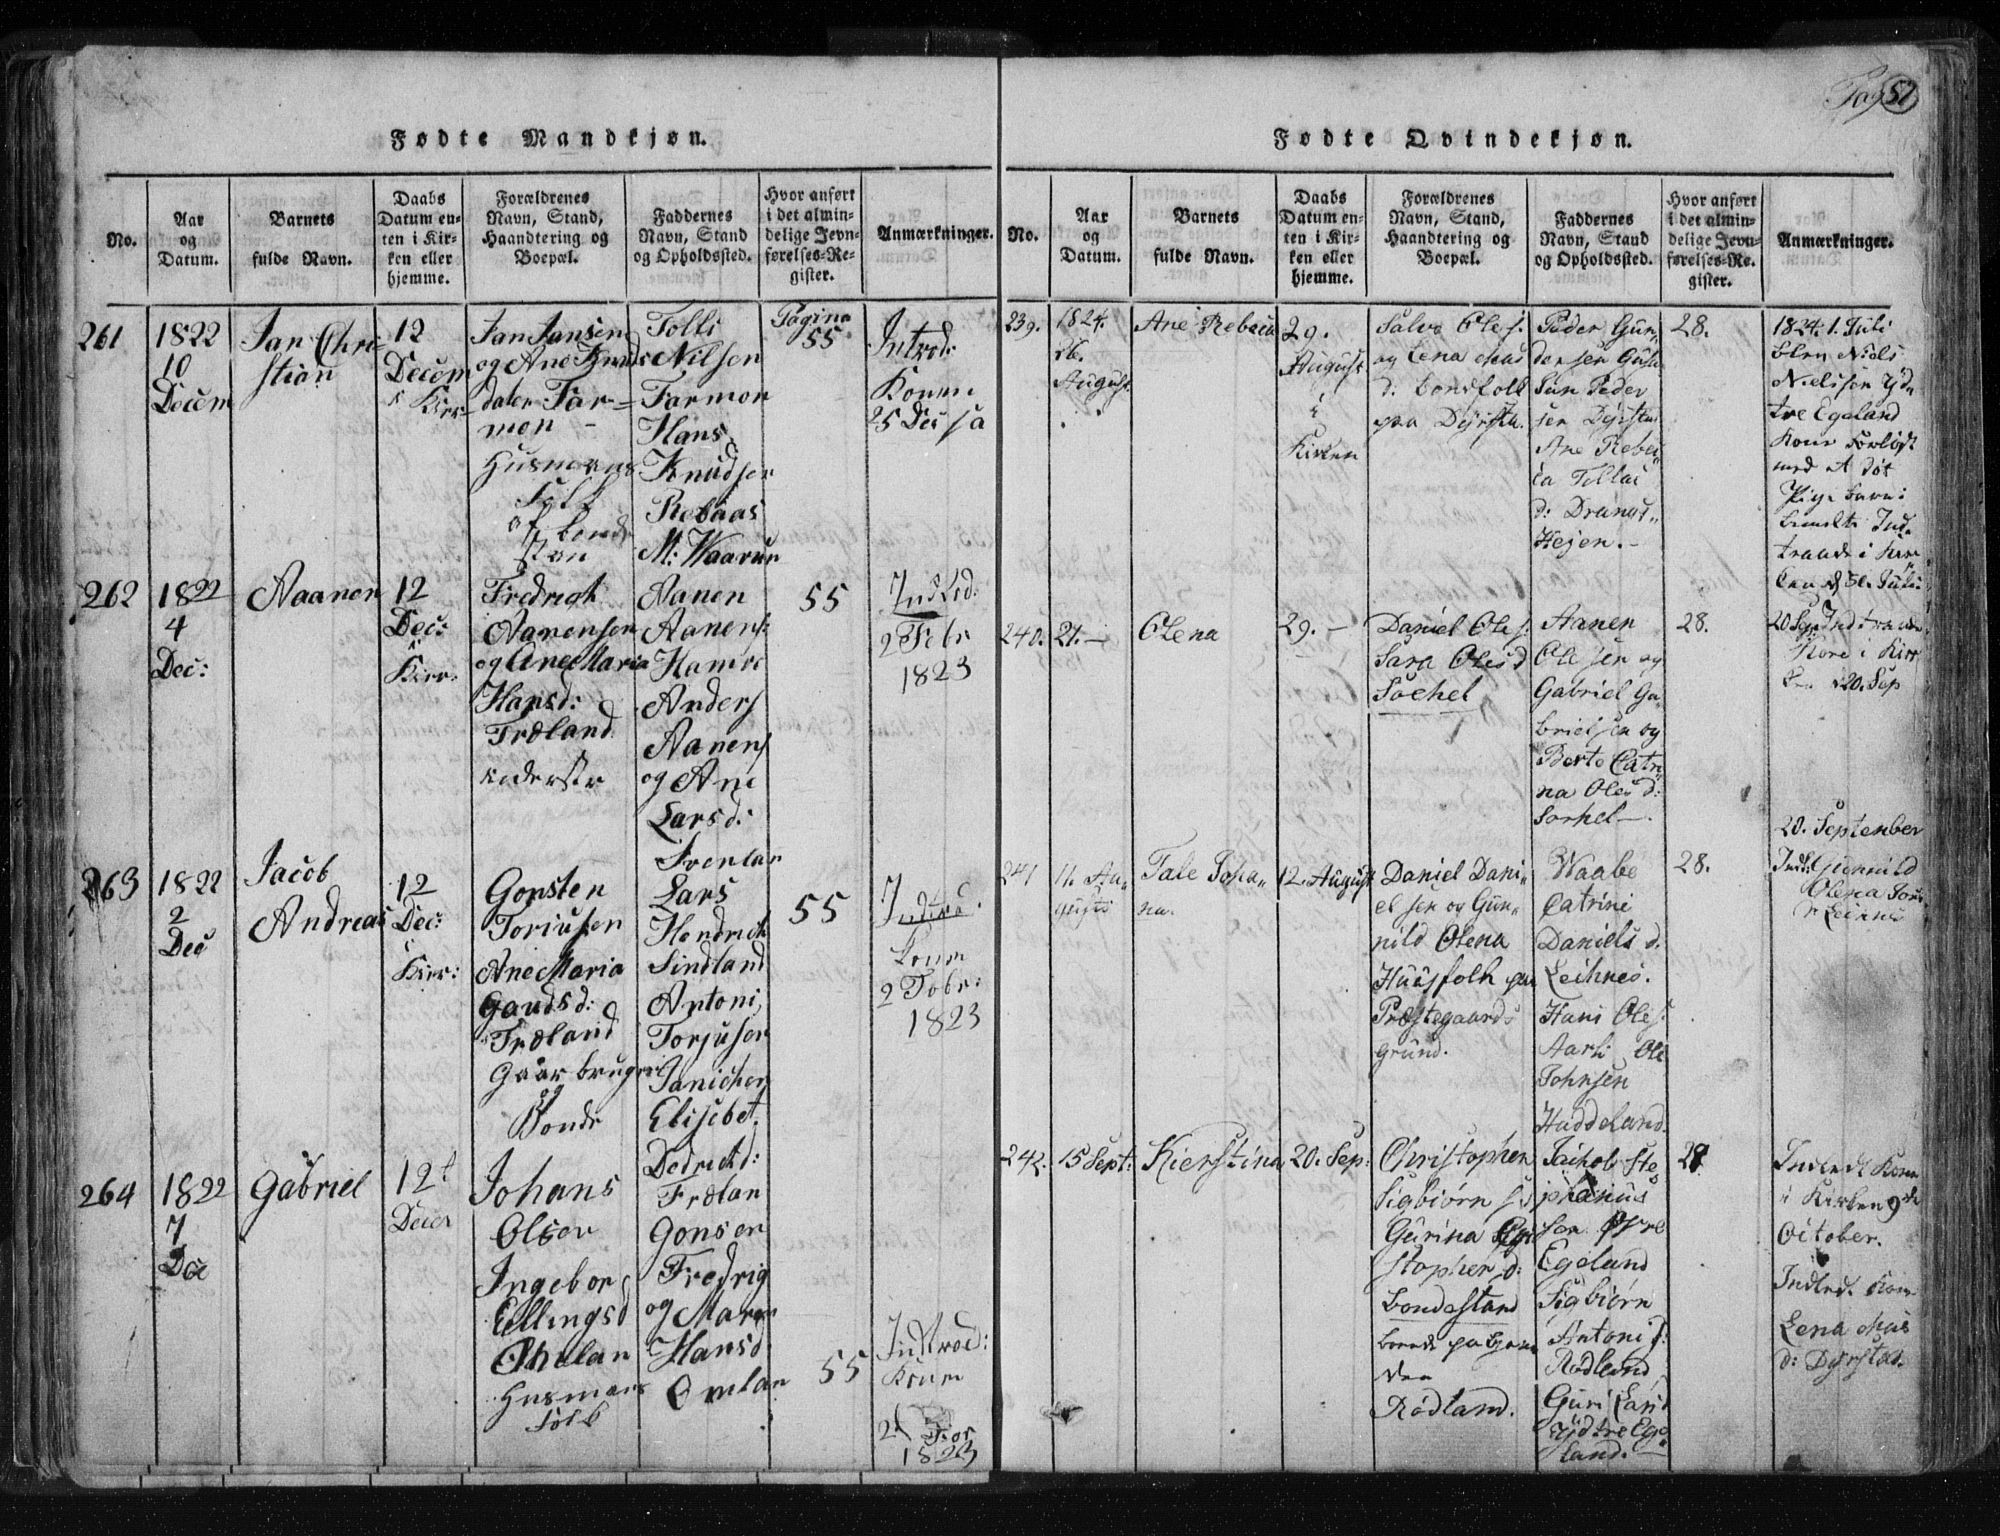 Pag 52
Fødte Mandkjøn.
No.
Aar
og
Datum.
Barnets
fulde Navn.
Daabs
Datum en-
ten i Kir-
ken eller
hjemme.
Forældrenes
Navn, Stand,
Haandtering og
Boepæl.
Faddernes
Navn, Stand
og Opholdssted.
Hvor anført
i det almin-
delige Jevn-
førelses-Re-
gister.
Anmærkninger.
261
1822
10
Decem
Jan Chri
stian
12
Decem
Kirr
Jan Jansen
og Ane Knuds
dater Far-
mon
Husmans
Folk
af bonde
stan
Tolli
Nilsen
Farmon
Hans
Knudsen
Rebaas
M: Waarun
Pagina
55
Introd:
Konen
25 Dec
262
1822
4
Dec:
Aanen
12
Dec:
Kirr:
Fredrigh
Aanensen
og Ane Maria
Hansd:
Frøland
Aanen
Aanens:
Hamre
Anders
Aanens
og Ane
Larsd:
Frenlan
55
Introd:
2 Febr
1823
263
1822
2
Dec
Jacob
Andreas
12
Dec:
Kirr:
Gonsten
Torjusen
Ane Maria
Gaudsd:
Frøland
Gaarbruger
og
Bonde
Lars
Hendrich
Sindland
Antoni
Torjusen
Janichen
Elisebet
Dedrichd:
Frølan
55
Introd:
Konen
2 Febr:
1823
264
1822
7
Dec
Gabriel
12t
Decer
Johans
Olsen
Ingebor
Ellingsd
Omlan
Husmans
Folk
Gonsen
Fredrig
og Maren
Hansd
Omlan
55
Introd:
Konen
1823
Fødte Qvindekjøn.
No.
Aar
og
Datum.
Barnets
fulde Navn.
Daabs
Datum en-
ten i Kir-
ken eller
hjemme.
Forældrenes
Navn, Stand,
Haandtering og
Boepæl.
Faddernes
Navn, Stand
og Opholdssted.
Hvor anført
i det almin-
delige Jevn-
førelses-Re-
gister.
Anmærkninger.
239.
1824.
26.
August
Ane Rebeca
29.
August
i
Kirken
Salve Ole s.
og Lena Mas
d: bondfolk
paa Dyrsta.
Peder Gun
dersen
Peder
sen Dyrstad
Ane Rebec
ca Tollac
d: Drangs„
Hejen.
28.
1824. 1. Juli
blev Niels
Nielsen Yd„
tre Egeland
Kone forløst
med et død
Pige barn:
bemelte Ind„
traade i Kir„
ken d 30. Juli
240.
21.
Olena
29.
Daniel Ole s:
Sara Olesd
Sochel
Aanen
Olesen og
Gabriel Ga„
brielsen og
Berte Catri„
na Olesd:
Sorhel
28.
20 Sep Indtraade
Kone i Kirr
ken d 20. Sep
241
11. Au„
gusti
Tale Joha„
na.
12. August
Daniel Dani„
elsen og Gun„
nild Olena
Huusfolk paa
Præstegaards
Grund.
Waabe
Catrine
Daniels d.
Leihnes.
Hans Oles:
Aarli Ole
Johnsen
Huddeland.
28.
20. September
Indl: Gunnild
Olena
Leihne
242.
15 Sept:
Kierstina
20. Sep:
Christophen
Sigbiørn s:
Gurina
Stopher d:
bondestand
Rødland.
Jaihob Ste
phanus
sen Øvre
Egeland
Sigbiørn
Antoni s:
Rødland
Guri Lars
Ydtre Ege„
land.
28
Indledt Kone
i Kirken 9de
October.
Indled. Kone
Lena Mas
d: Dyrstad.